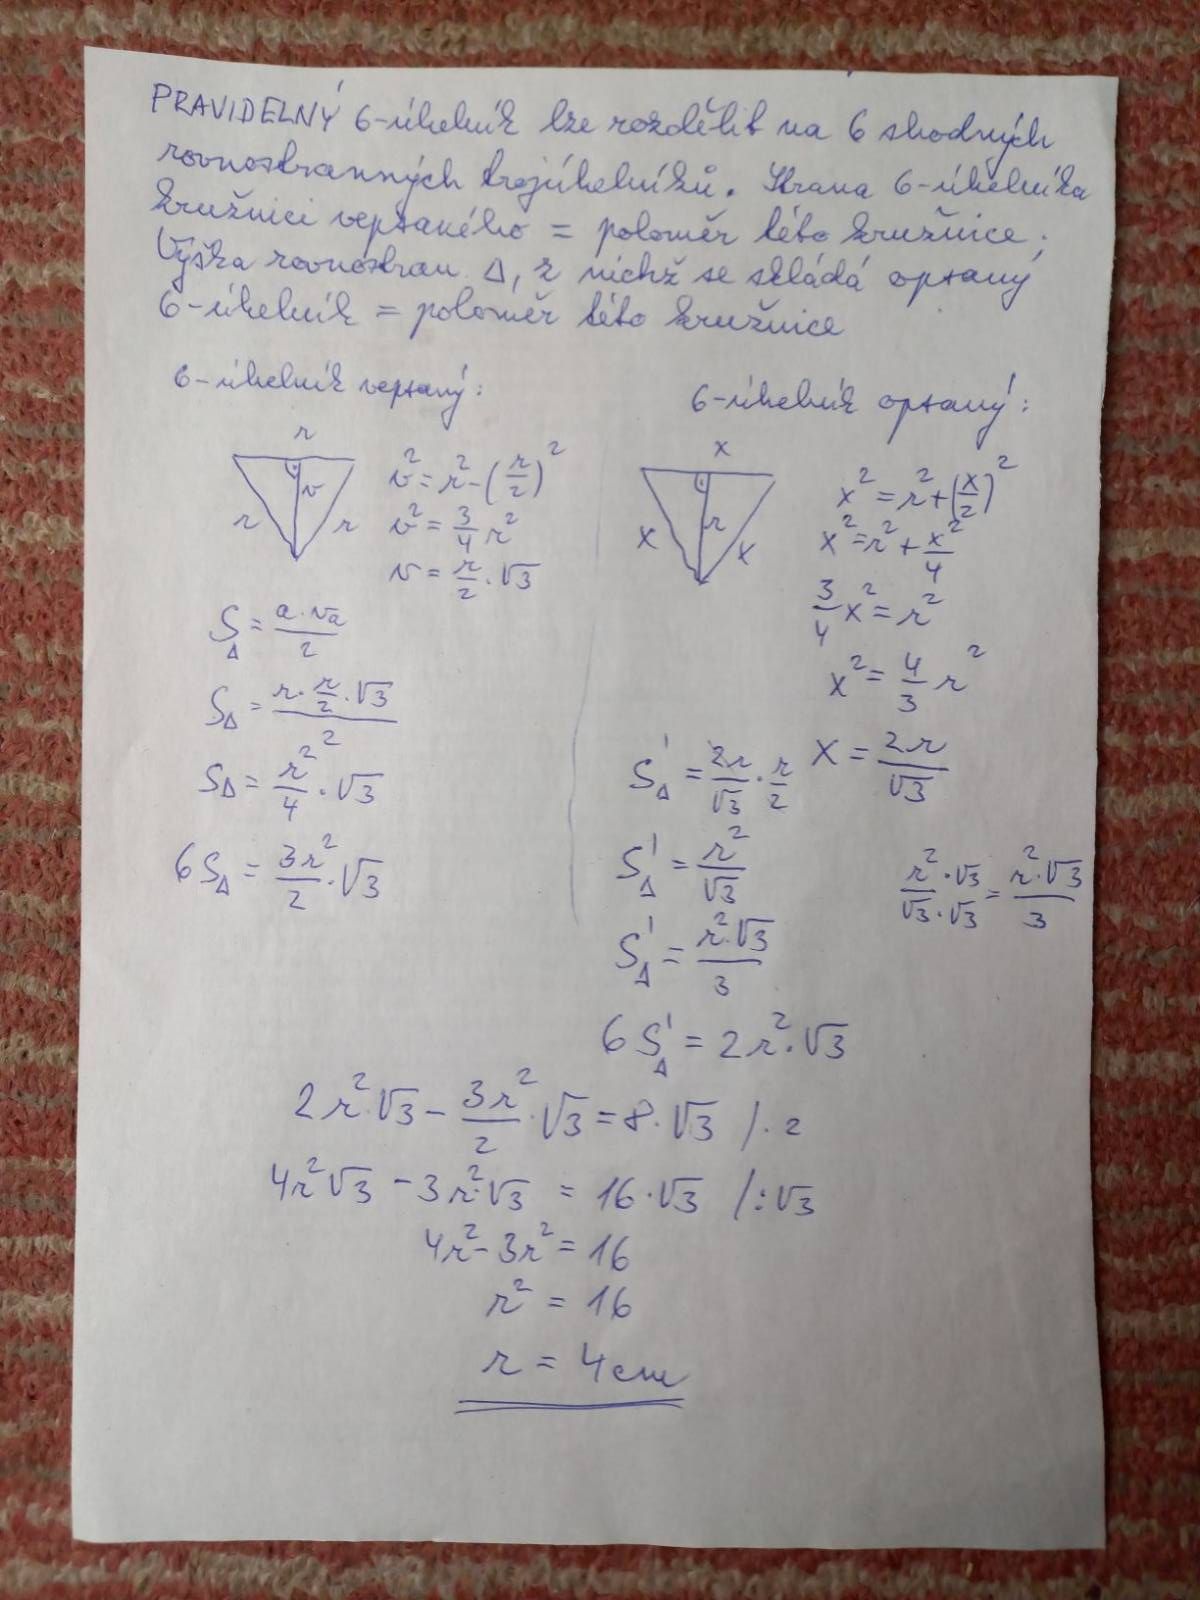 PRAVIDELNÝ 6-úhelník lze rozdělit na 6 shodných
rovnostranných trojúhelníků. Strana 6-úhelníka
kružnici vepsaného = poloměr této kružnice.
Výška rovnostran. Δ, z nichž se skládá opsaný
6-úhelník = poloměr této kružnice
6-úhelník vepsaný:
r
r
v
r
v² = r² - (r/2)²
v² = 3/4 r²
v = r/2 · √3
S_Δ = a·v_a / 2
S_Δ = r · r/2 · √3 / 2
S_Δ = r²/4 · √3
6S_Δ = 3r²/2 · √3
6-úhelník opsaný:
x
x
r
x
x² = r² + (x/2)²
x² = r² + x²/4
3/4 x² = r²
x² = 4/3 r²
x = 2r/√3
S'_Δ = 2r/√3 · r/2
S'_Δ = r²/√3
r²·√3 / √3·√3 = r²·√3 / 3
S'_Δ = r²·√3 / 3
6S'_Δ = 2r²·√3
2r²·√3 - 3r²/2 · √3 = 8·√3 /·2
4r²√3 - 3r²·√3 = 16·√3 /:√3
4r² - 3r² = 16
r² = 16
r = 4cm